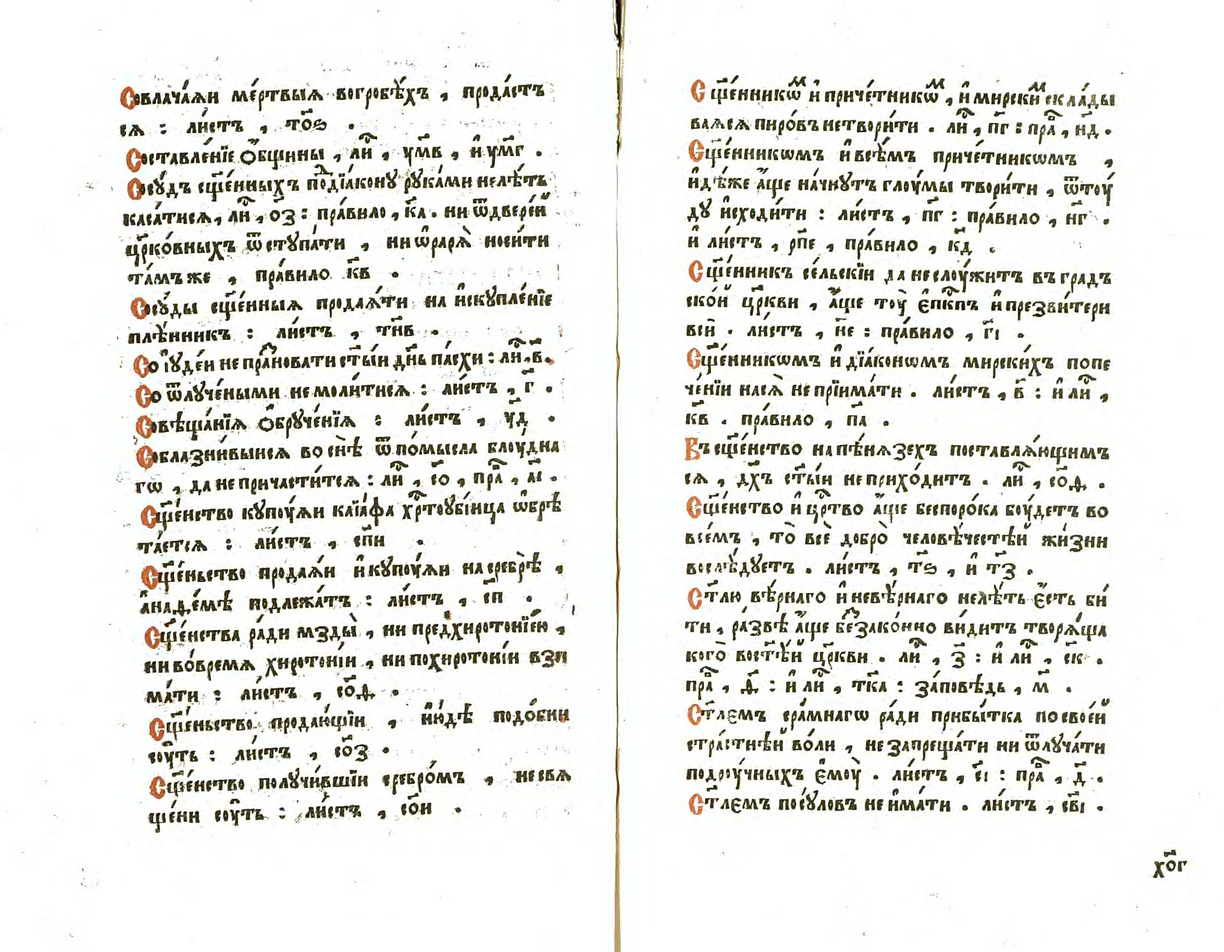 Совлача́ѧи ме́ртвыѧ вогробѣ́хъ , прода́стъ
сѧ : ли́стъ , то҃ѕ .
Составле́нїе о҆́бщины , ли҃ , ум҃в , и҆ ум҃г .
Сосу́дъ сщ҃е́нныхъ подїа́кону рука́ми нелѣ́ть
каса́тисѧ , ли҃ , оз : пра́вило , к҃а . ни ѿдвере́й
цр҃ко́вныхъ ѿступа́ти , ни ѡ҆рарѧ̀ носи́ти
та́мъже , пра́вило к҃в .
Сосу́ды сщ҃е́нныѧ продаѧ́ти на и҆скупле́нїе
плѣ́нникъ : ли́стъ , тн҃в .
Со і҆уде́и не пра́зновати ст҃ы́и дн҃ь па́схи : ли҃ . в҃ .
Со ѿлуче́ными не моли́тисѧ : ли́стъ , г҃ .
Совѣща́нїѧ о҆бруче́нїѧ : ли́стъ , у҃д .
Соблазни́выисѧ во снѣ̀ ѿ по́мысла блоу́дна
гѡ , да не причасти́тсѧ : ли҃ , со҃ , пра҃ , а҃і .
Сщ҃е́нство купоу́ѧи каїа́фа хр҃тоубі́ица ѡ҆брѣ
та́етсѧ : ли́стъ , сп҃и .
Сщ҃е́ньство продаѧ́и и҆ купоу́ѧи на сребрѣ̀ ,
а҆на́ѳемѣ подлежа́тъ : ли́стъ , сп҃ .
Сщ҃е́нства ра́ди мзды̀ , ни предхиротонї́ею ,
ни во́времѧ хиротоні́и , ни похиротоні́и взи
ма́ти : ли́стъ , со҃д .
Сщ҃е́ньство продаю́щїи , и҆ю́дѣ подо́бни
соу́ть : ли́стъ , со҃з .
Сщ҃е́нство получи́вшїи сребро́мъ , не свѧ
ще́ни соу́ть : ли́стъ , со҃и .
Сщ҃е́нникѡⷨ и҆ приче́тникѡⷨ , и҆ мирскиⷨ склады
ваѧсѧ пиро́въ нетвори́ти . ли҃ , п҃г : пра҃ , н҃д .
Сщ҃е́нникѡмъ и҆ всѣ́мъ приче́тникѡмъ ,
и҆дѣ́же а҆́ще начну́тъ глоу́мы твори́ти , ѿтоу́
ду и҆сходи́ти : ли́стъ , п҃г : пра́вило , н҃г .
и҆ ли́стъ , рп҃е , пра́вило , к҃д .
Сщ҃е́нникъ се́льскїи да не слоу́житъ въ град
ско́й цр҃кви , а҆́ще тоу̀ є҆пк҃пъ и҆ презви́тери
всѝ . ли́стъ , н҃е : пра́вило , г҃і .
Сщ҃е́нникѡмъ и҆ дїа́конѡмъ мирски́хъ попе
че́нїи насѧ̀ не прїима́ти . ли́стъ , в҃ : и҆ ли҃ ,
к҃в . пра́вило , п҃а .
Въ сщ҃е́нство на пѣ́нѧзехъ поставлѧ́ющимъ
сѧ , дх҃ъ ст҃ы́и не прихо́дитъ . ли҃ , со҃д .
Сщ҃е́нство и҆ цр҃тво а҆́ще беспоро́ка боу́детъ во
все́мъ , то̀ всѐ добро̀ человѣ́честѣй жи́зни
вослѣ́дуетъ . ли́стъ , т҃ѕ , и҆ т҃з .
Ст҃лю вѣ́рнаго и҆ невѣ́рнаго нелѣ́ть є҆́сть би́
ти , ра́звѣ а҆́ще безако́нно видитъ творѧ́ща
кого̀ вост҃ѣ́й цр҃кви . ли҃ , з҃ : и҆ ли҃ , с҃к .
пра҃ , д҃ : и҆ ли҃ , тк҃а : за́повѣдь , м҃ .
Ст҃лємъ сра́мнагѡ ра́ди прибы́тка по свое́й
стра́стнѣй во́ли , не запреща́ти ни ѿлуча́ти
подроу́чныхъ є҆моу̀ . ли́стъ , є҃і : пра҃ , д҃ .
Ст҃лємъ посу́ловъ не и҆ма́ти . ли́стъ , св҃і .
хо҃г